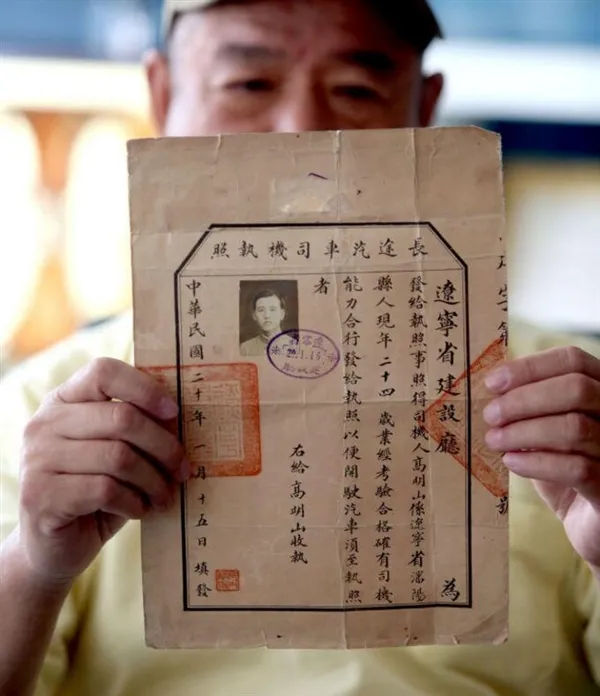 長途汽車司機執照
遼寧省建設廳 為
發給執照事照得司機人高明山係遼寧省瀋陽
縣人現年二十四歲業經考驗合格確有司機
能力合行發給執照以便開駛汽車須至執照
者
右給高明山收執
中華民國二十年一月十五日填發
號